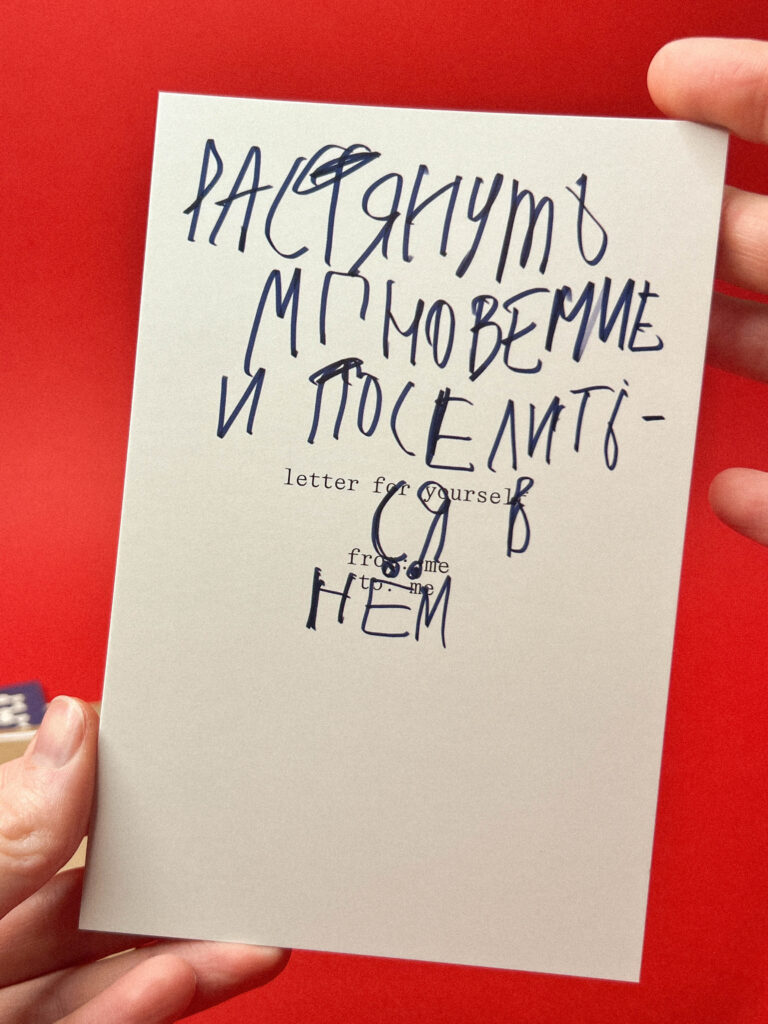 РАСТЯНУТЬ
МГНОВЕНИЕ
И ПОСЕЛИТЬ-
letter for yourself
СЯ В
from: me
to: me
НЁМ